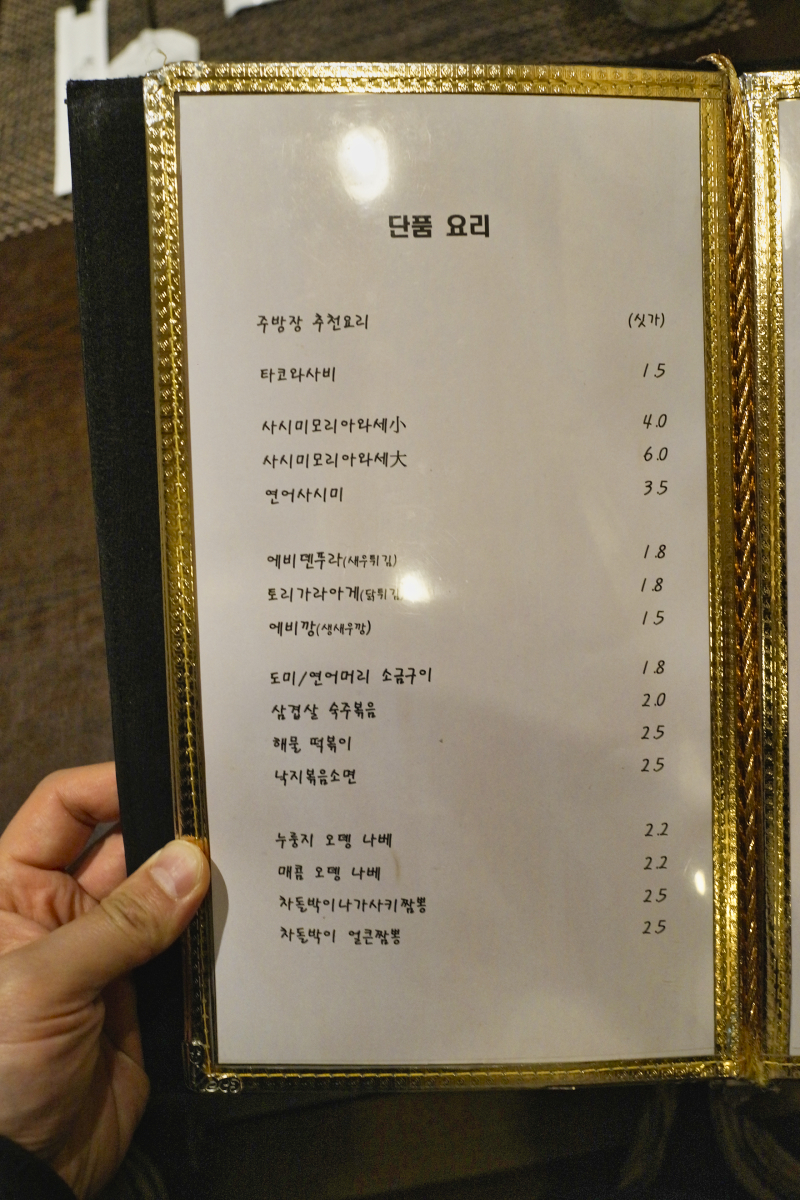 단품 요리
주방장 추천요리 (싯가)
타코와사비 1.5
사시미모리아와세小 4.0
사시미모리아와세大 6.0
연어사시미 3.5
에비덴푸라(새우튀김) 1.8
토리가라아게(닭튀김) 1.8
에비깡(생새우깡) 1.5
도미/연어머리 소금구이 1.8
삼겹살 숙주볶음 2.0
해물 떡볶이 2.5
낙지볶음소면 2.5
누룽지 오뎅 나베 2.2
매콤 오뎅 나베 2.2
차돌박이나가사키짬뽕 2.5
차돌박이 얼큰짬뽕 2.5